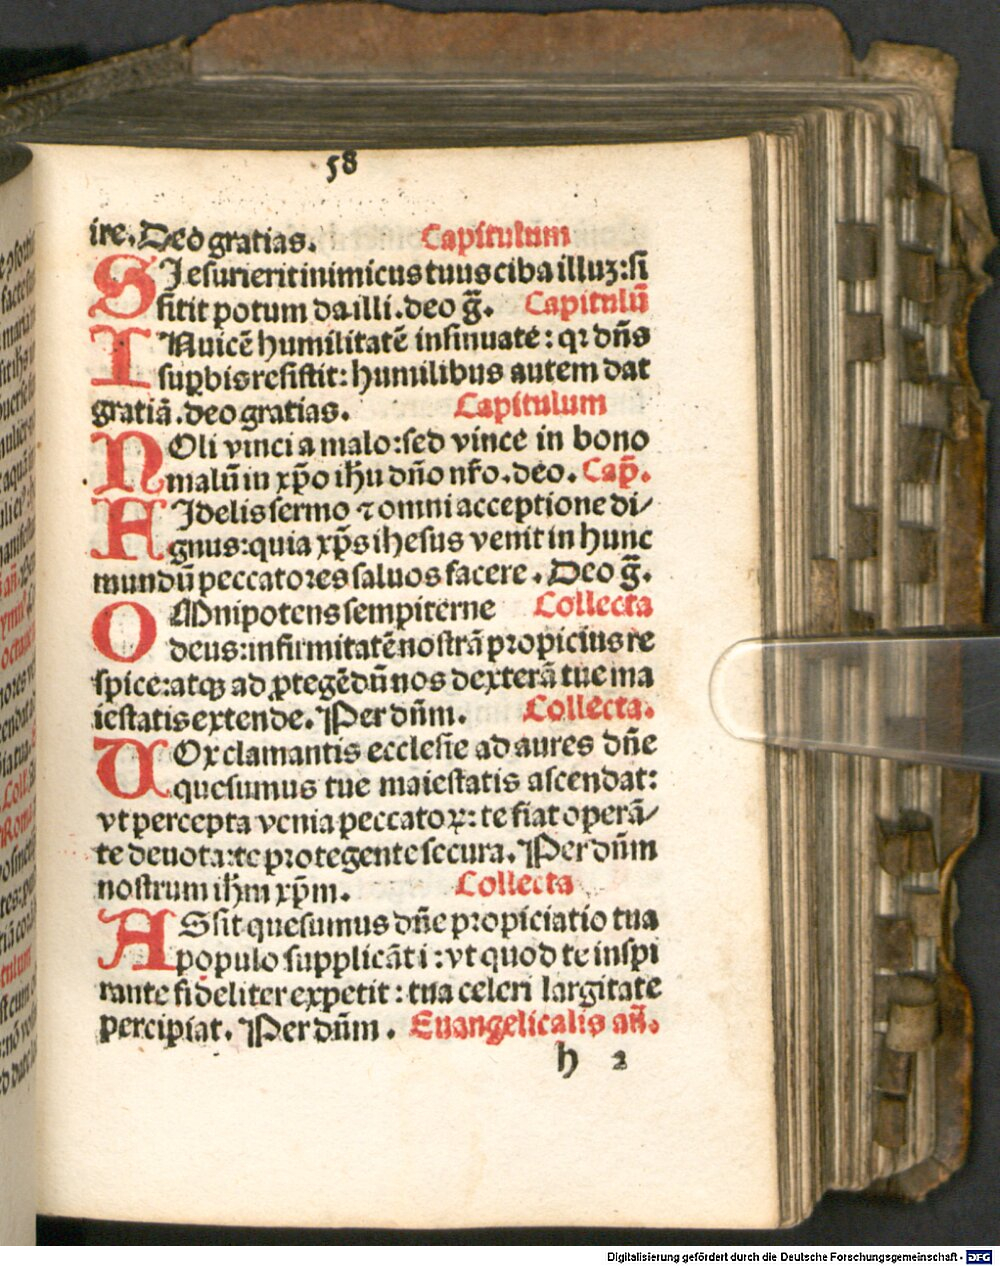 58
ire. Deo gratias. Capitulum
SI esurierit inimicus tuus ciba illuʒ: si
sitit potum da illi. deo g̃. Capitulū
INuicē humilitatē insinuate: qꝛ dn̄s
suꝑbis resistit: humilibus autem dat
gratiā. deo gratias. Capitulum
NOli vinci a malo: sed vince in bono
malū in xp̄o ih̄u dn̄o nr̄o. deo. Cap̄.
FIdelis sermo ⁊ omni acceptione di⸗
gnus: quia xp̄s ihesus venit in hunc
mundū peccatores saluos facere. Deo g̃.
OMnipotens sempiterne Collecta
deus: infirmitatē nostrā propicius re
spice: atqꝫ ad ꝓtegēdū nos dexterā tue ma
iestatis extende. Per dn̄m. Collecta.
VOx clamantis ecclesie ad aures dn̄e
quesumus tue maiestatis ascendat:
vt percepta venia peccatoꝝ: te fiat operā⸗
te deuota: te protegente secura. Per dn̄m
nostrum ih̄m xp̄m. Collecta
ASsit quesumus dn̄e propiciatio tua
populo supplicāti: vt quod te inspi
rante fideliter expetit: tua celeri largitate
percipiat. Per dn̄m. Euangelicalis an̄.
h 2
Digitalisierung gefördert durch die Deutsche Forschungsgemeinschaft - DFG